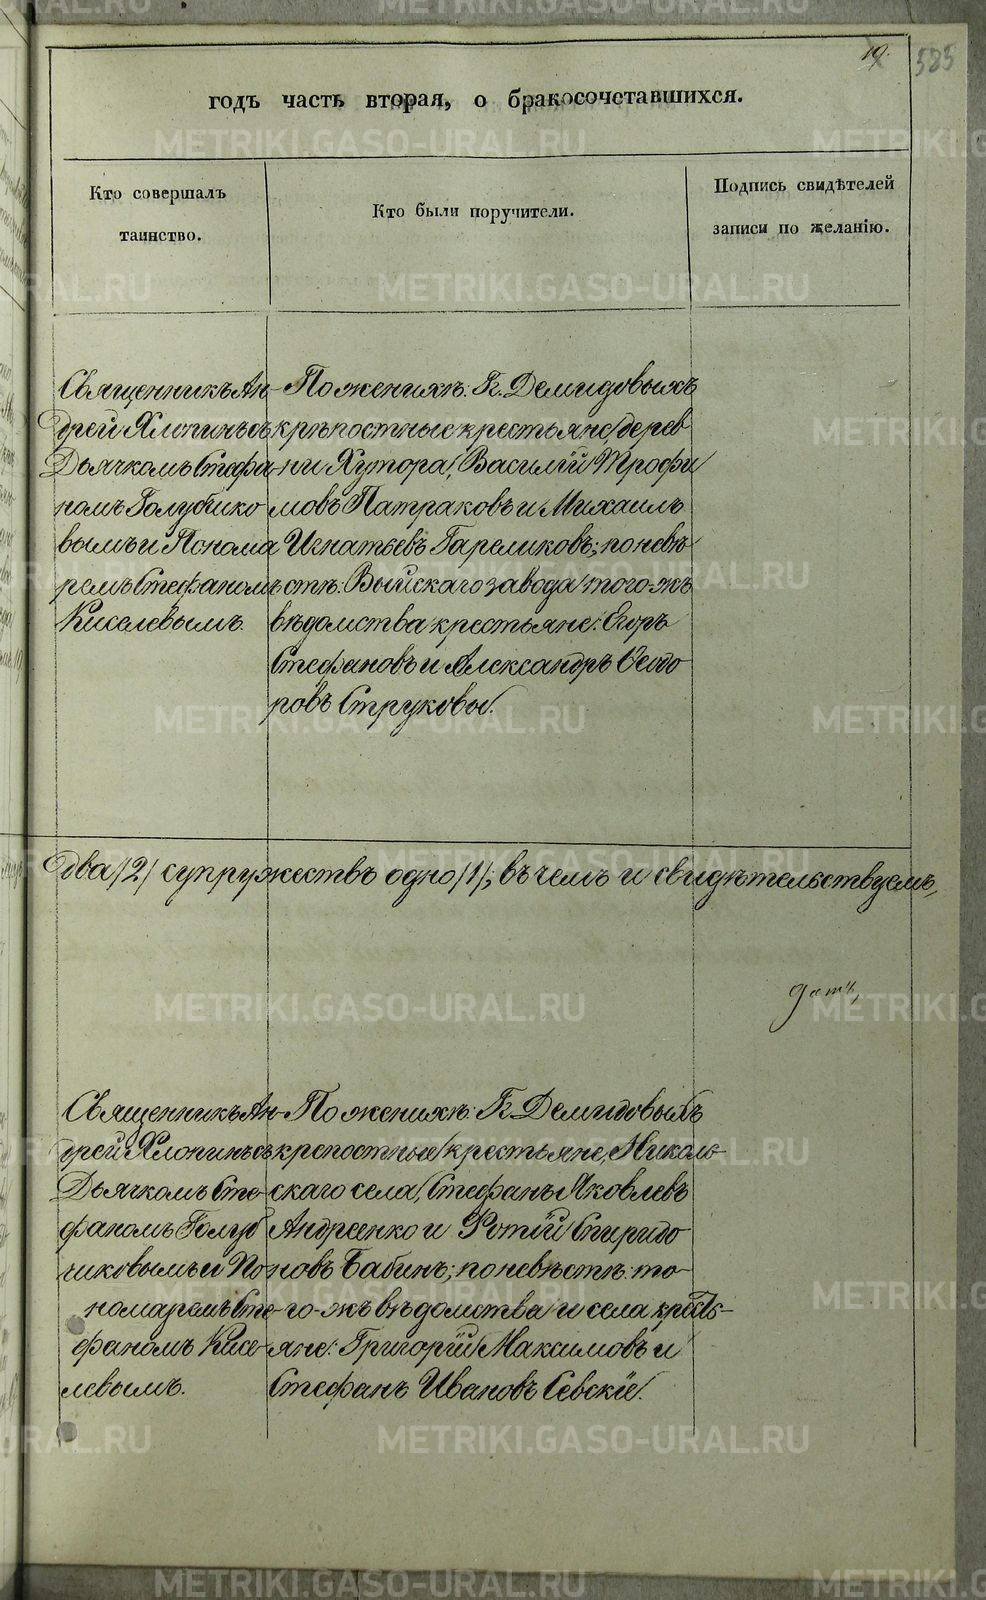 19.
585
годъ часть вторая, о бракосочетавшихся.
Кто совершалъ
таинство.
Кто были поручители.
Подпись свидѣтелей
записи по желанію.
Священникъ Ан-
дрей Хлопинъ съ
Дьячкомъ Стефа
номъ Голубчико
вымъ и Понома
ремъ Стефаномъ
Киселевымъ.
По женихѣ: Г. Демидовыхъ
крѣпостные крестьяне дерев
ни Хутора, Василій Трофи
мовъ Патраковъ и Михаилъ
Игнатьевъ Гареликовъ; по невѣ
стѣ: Выйскаго завода того-жъ
вѣдомства крестьяне: Егоръ
Стефановъ и Александръ Ѳеодо
ровъ Струковы.
два /2/ супружествъ одно /1/; въ чемъ и свидѣтельствуемъ,
Священникъ Ан-
дрей Хлопинъ съ
Дьячкомъ Сте-
фаномъ Голуб
чиковымъ и По
номаремъ Сте-
фаномъ Кисе-
левымъ.
По женихѣ: Г. Демидовыхъ
крепостные крестьяне, Николь-
скаго села, Стефанъ Яковлевъ
Андреенко и Фотій Спиридо
новъ Бабинъ; по невѣстѣ: то-
го-жъ вѣдомства и села кресть-
яне: Григорій Максимовъ и
Стефанъ Ивановъ Севскіе.
METRIKI.GASO-URAL.RU